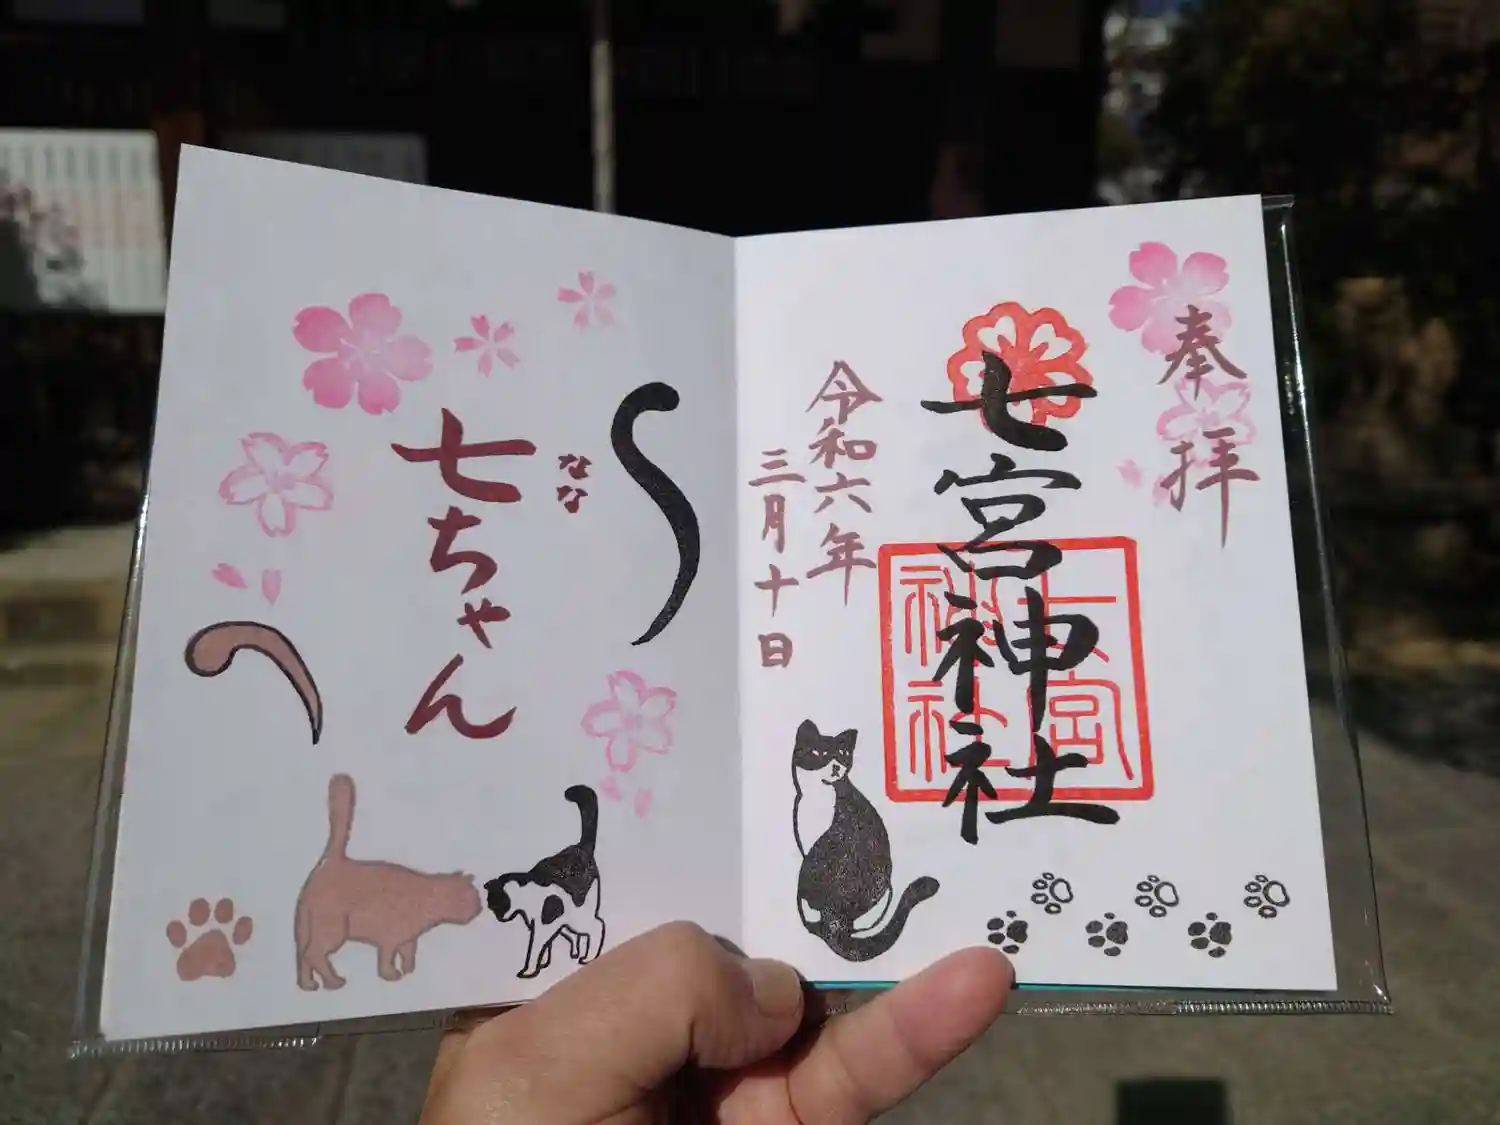 奉拝
七宮神社
七宮神社
令和六年
三月十日
なな
七ちゃん